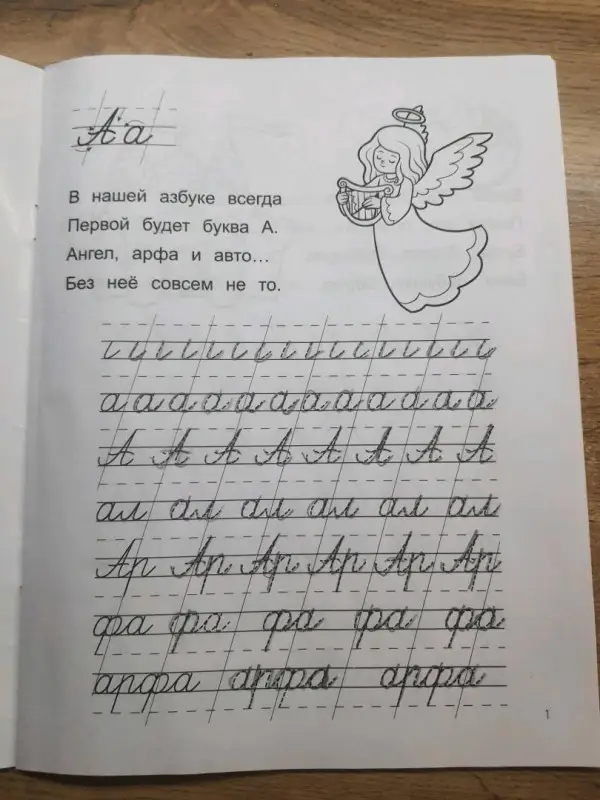 А а
В нашей азбуке всегда
Первой будет буква А.
Ангел, арфа и авто...
Без неё совсем не то.
а а а а а а а а а а а а
А А А А А А А А
ал ал ал ал ал ал
Ар Ар Ар Ар Ар Ар
фа фа фа фа фа
арфа арфа арфа
1